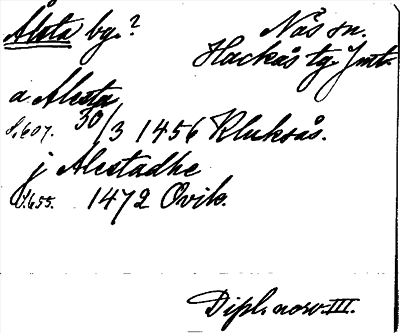 Ålsta by.? Näs sn.
Hackås tg Jmt.
a Alesta
S.607. 30/3 1456 Kluksås.
j Alestadhe
S.655. 1472 Ovik.
Dipl. norv. III.